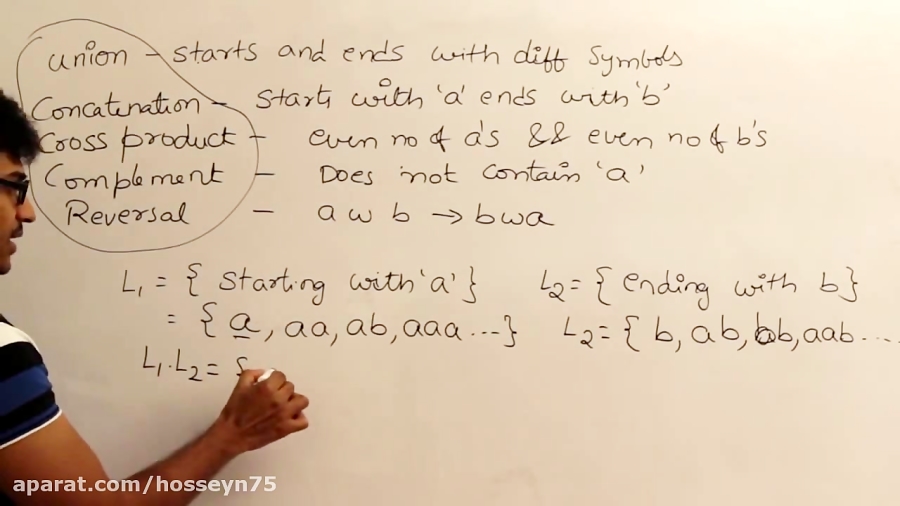 union - starts and ends with diff symbols
Concatenation - starts with 'a' ends with 'b'
Cross product - even no of a's && even no of b's
Complement - Does not contain 'a'
Reversal - a w b → b w a
L₁ = { starting with 'a' } L₂ = { ending with b }
= { a, aa, ab, aaa ... } L₂ = { b, ab, bb, aab ...
L₁.L₂ = {
aparat.com/hosseyn75